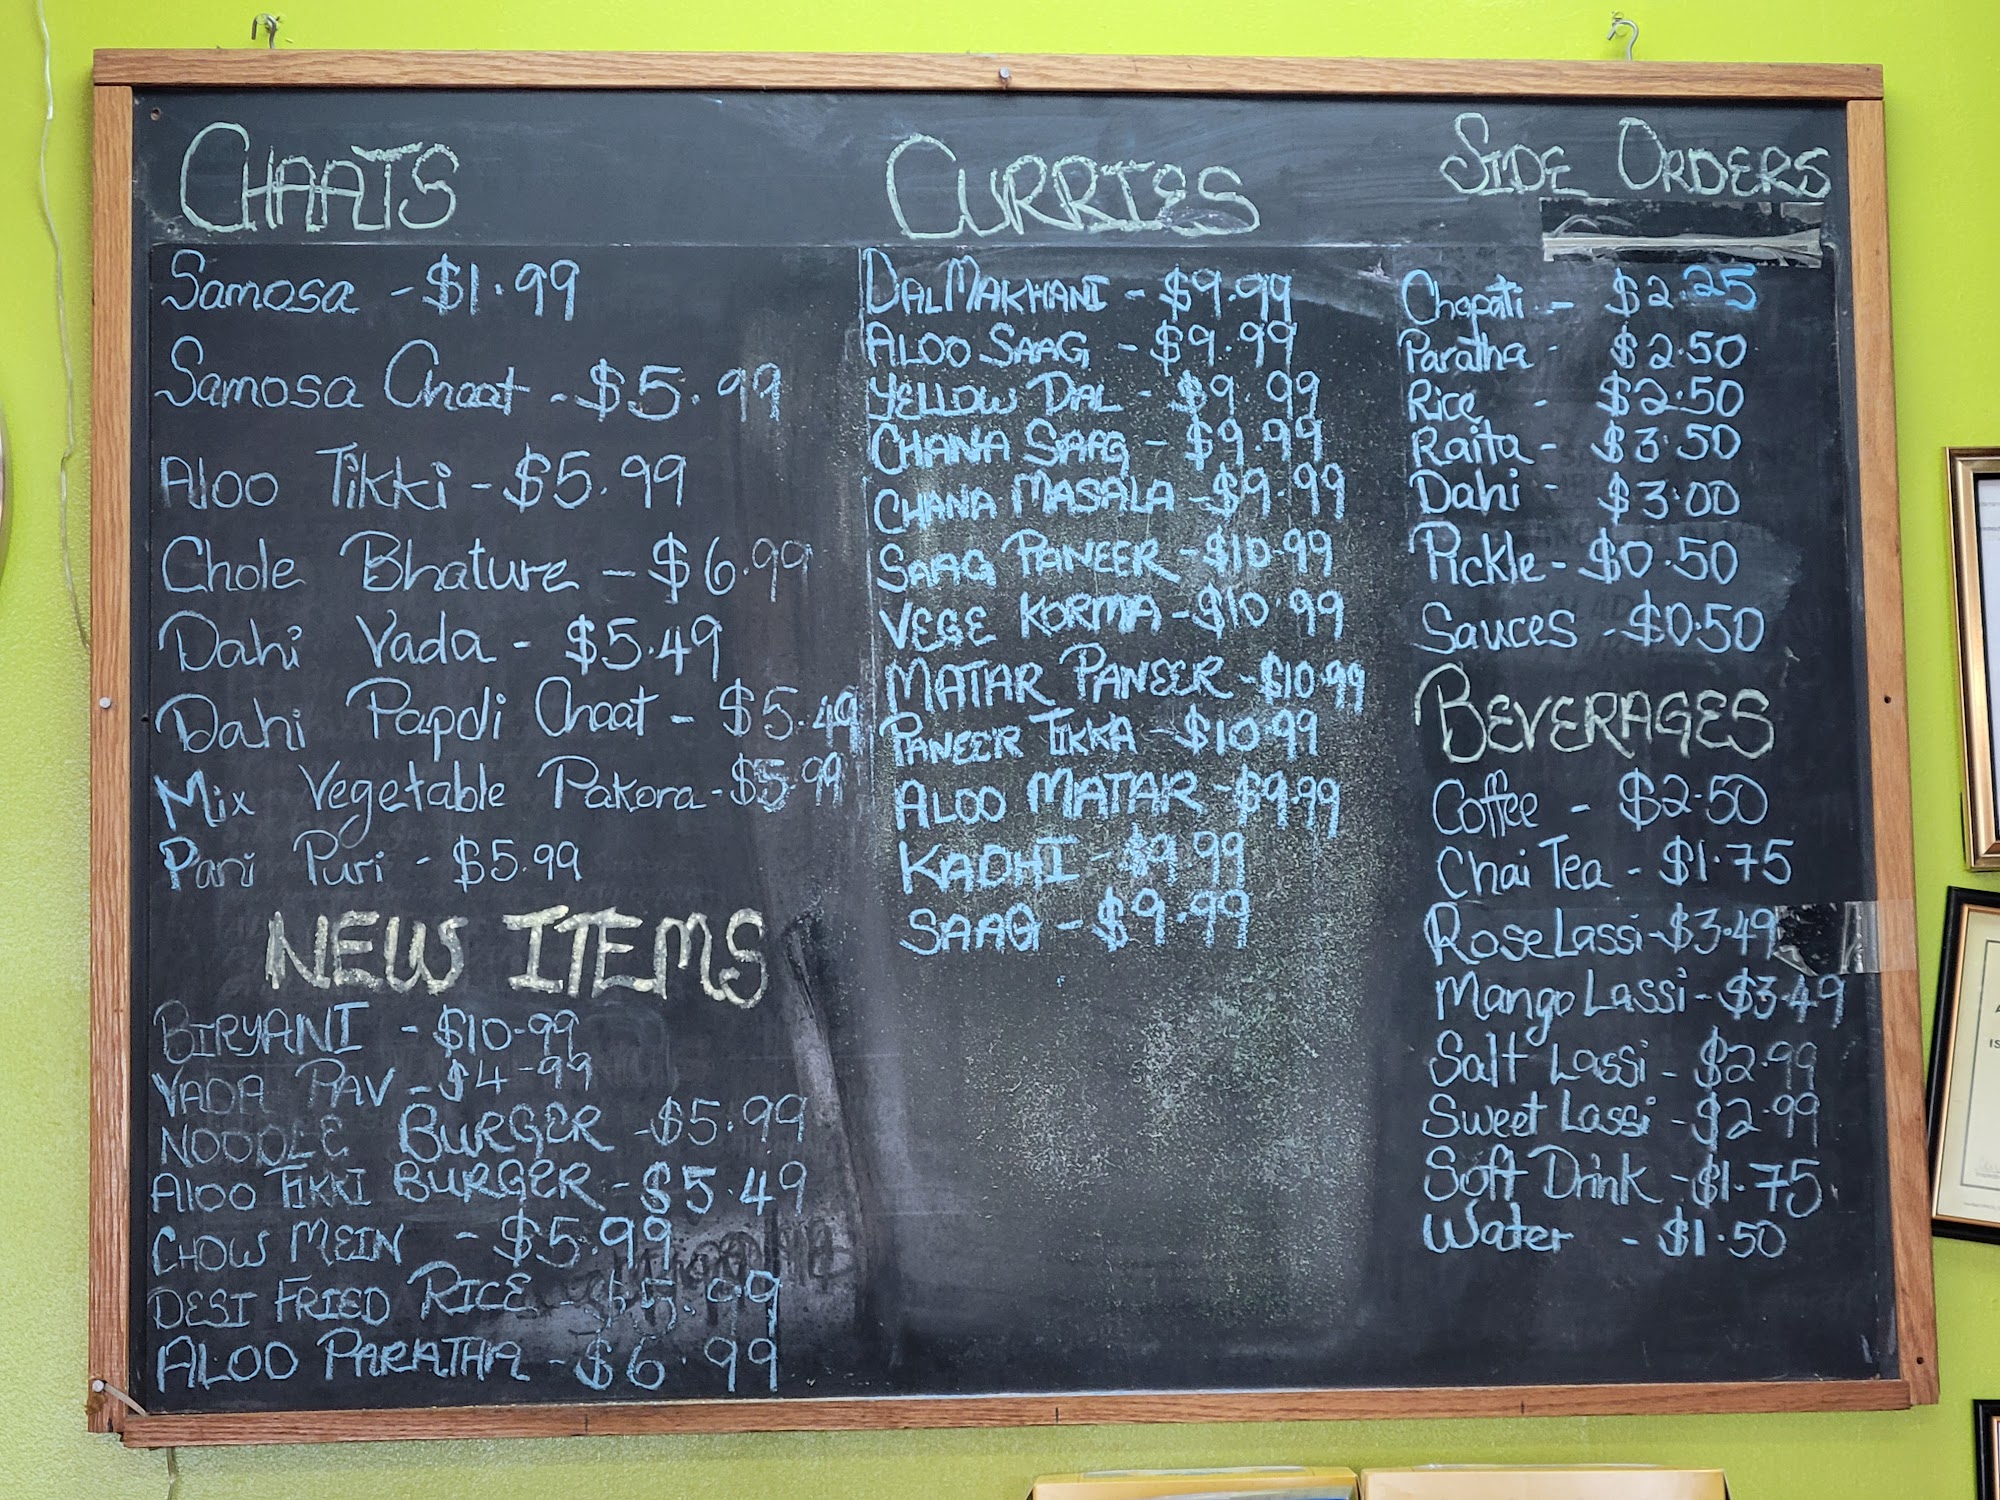 CHAATS
Samosa - $1.99
Samosa Chaat - $5.99
Aloo Tikki - $5.99
Chole Bhature - $6.99
Dahi Vada - $5.49
Dahi Papdi Chaat - $5.49
Mix Vegetable Pakora - $5.99
Pani Puri - $5.99
NEW ITEMS
BIRYANI - $10.99
VADA PAV - $4.99
NOODLE BURGER - $5.99
ALOO TIKKI BURGER - $5.49
CHOW MEIN - $5.99
DESI FRIED RICE - $5.99
ALOO PARATHA - $6.99
CURRIES
DAL MAKHANI - $9.99
ALOO SAAG - $9.99
YELLOW DAL - $9.99
CHANA SAAG - $9.99
CHANA MASALA - $9.99
SAAG PANEER - $10.99
VEGE KORMA - $10.99
MATAR PANEER - $10.99
PANEER TIKKA - $10.99
ALOO MATAR - $9.99
KADHI - $9.99
SAAG - $9.99
SIDE ORDERS
Chapati - $2.25
Paratha - $2.50
Rice - $2.50
Raita - $3.50
Dahi - $3.00
Pickle - $0.50
Sauces - $0.50
BEVERAGES
Coffee - $2.50
Chai Tea - $1.75
Rose Lassi - $3.49
Mango Lassi - $3.49
Salt Lassi - $2.99
Sweet Lassi - $2.99
Soft Drink - $1.75
Water - $1.50